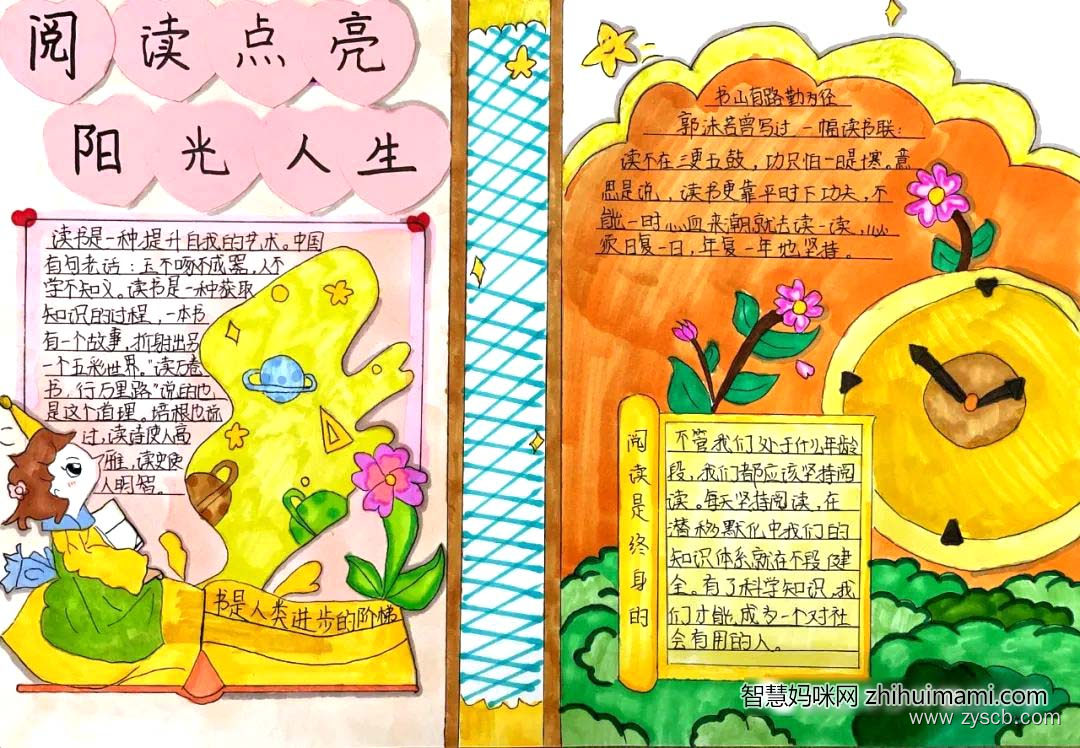 阅读点亮
阳光人生
读书是一种提升自我的艺术。中国
有句老话：玉不啄不成器，人不
学不知义。读书是一种获取
知识的过程，一本书
有一个故事，折射出另
一个五彩世界。“读万卷
书，行万里路”说的也
是这个道理。培根也说
过，读诗使人高
雅，读史使
人明智。
书是人类进步的阶梯
书山有路勤为径
郭沫若曾写过一幅读书联：
读不在三更五鼓，功只怕一曝十寒。意
思是说，读书更靠平时下功夫，不
能一时心血来潮就去读一读，必
须日复一日，年复一年地坚持。
阅读是终身的
不管我们处于什么年龄
段，我们都应该坚持阅
读。每天坚持阅读，在
潜移默化中我们的
知识体系就在不段健
全。有了科学知识，我
们才能成为一个对社
会有用的人。
智慧妈咪网 zhihuimami.com
www.zyscb.com